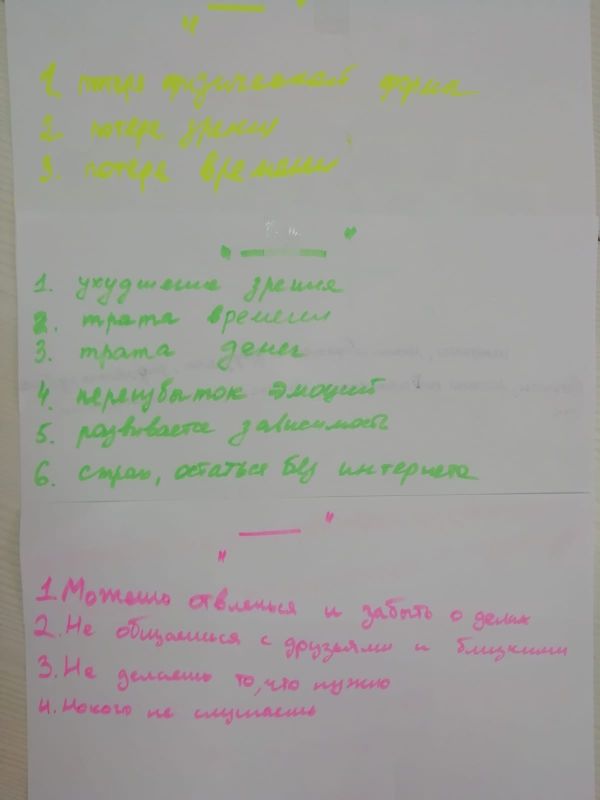 " — "
1. потеря физической формы
2. потеря зрения
3. потеря времени
" — "
1. ухудшение зрения
2. трата времени
3. трата денег
4. переизбыток эмоций
5. развивается зависимость
6. страх, остаться без интернета
" — "
1. Можешь отвлечься и забыть о делах
2. Не общаешься с друзьями и близкими
3. Не делаешь то, что нужно
4. Никого не слушаешь